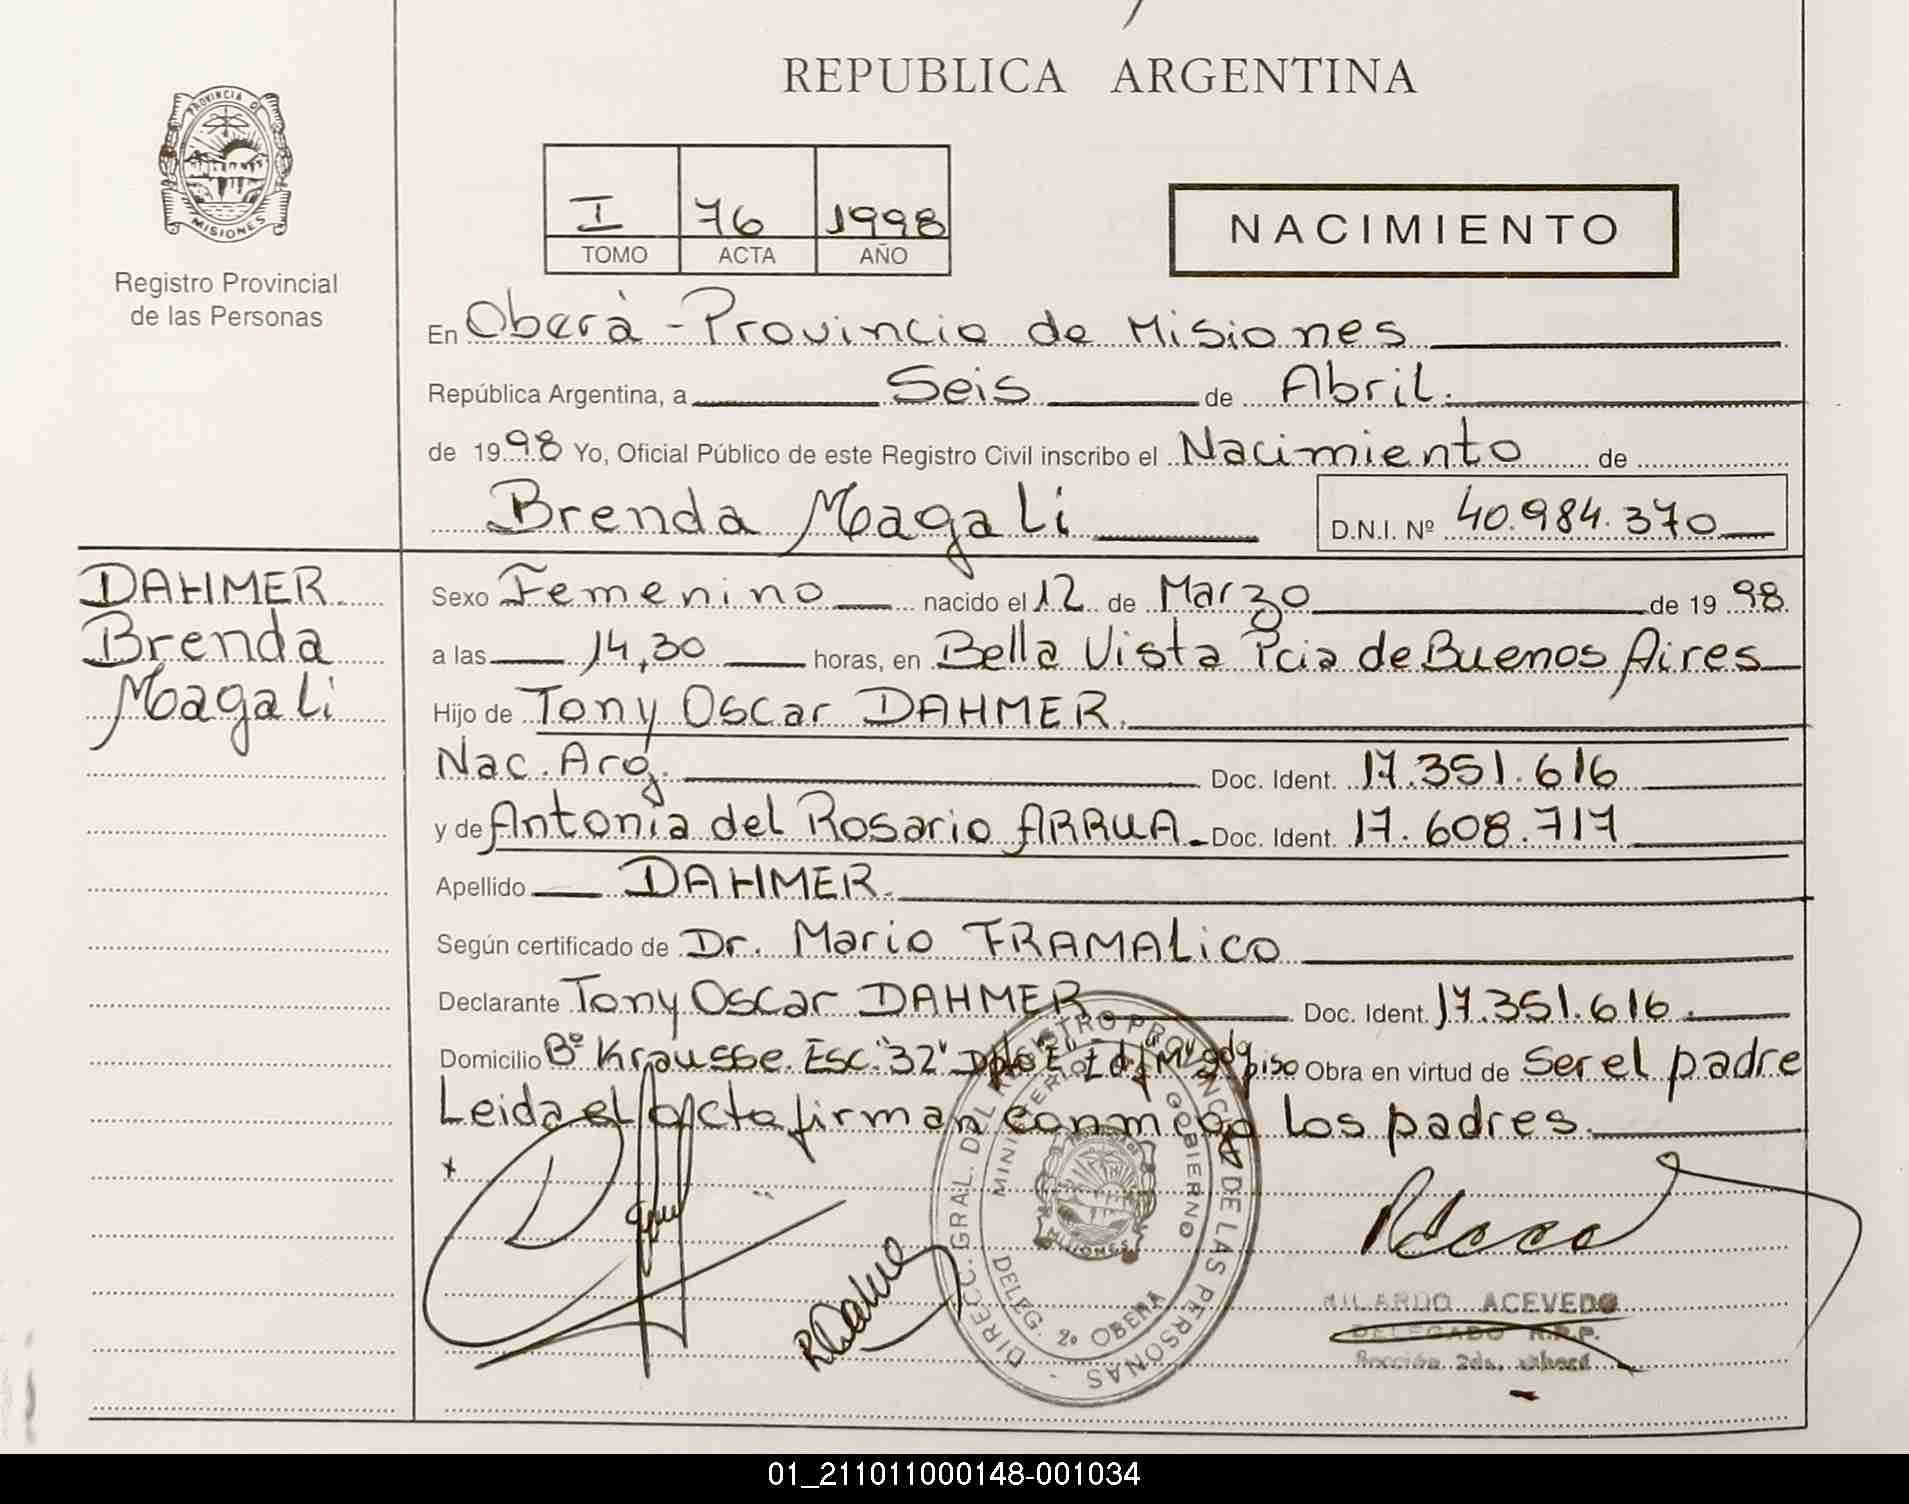 REPUBLICA ARGENTINA
PROVINCIA D
MISIONES
Registro Provincial
de las Personas
I 76 1998
TOMO ACTA AÑO
NACIMIENTO
En Oberà - Provincia de Misiones
República Argentina, a Seis de Abril.
de 1998 Yo, Oficial Público de este Registro Civil inscribo el Nacimiento de
Brenda Magali D.N.I. Nº 40.984.370
DAHMER
Brenda
Magali
Sexo Femenino nacido el 12 de Marzo de 1998.
a las 14,30 horas, en Bella Vista Pcia de Buenos Aires
Hijo de Tony Oscar DAHMER.
Nac. Arg. Doc. Ident. 17.351.616
y de Antonia del Rosario ARRUA. Doc. Ident. 17.608.717
Apellido DAHMER.
Según certificado de Dr. Mario FRAMALICO
Declarante Tony Oscar DAHMER Doc. Ident. 17.351.616.
Domicilio Bº Krausse. Esc. "32" Dpto "E" Ed. "M" piso Obra en virtud de Ser el padre
Leida el acta firman conmigo los padres.
DIRECC. GRAL. DEL REGISTRO PROVINCIAL DE LAS PERSONAS
MINISTERIO GOBIERNO
DELEG. 2º OBERA
MISIONES
RICARDO ACEVEDO
DELEGADO R.P.P.
Sección 2da.
01_211011000148-001034